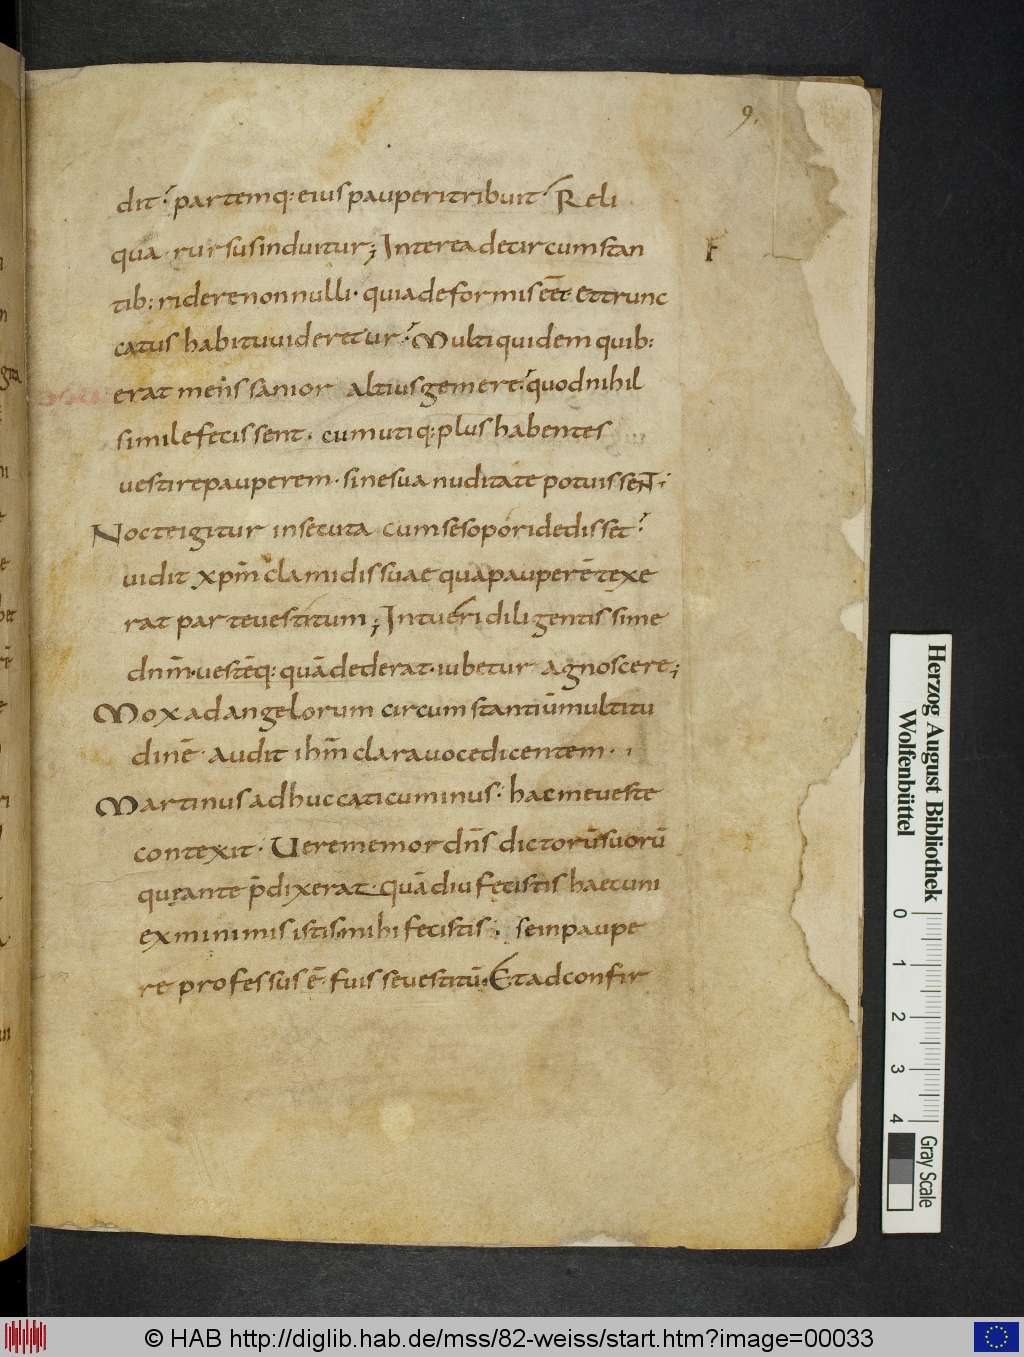 9.
dit. partemq: eius pauperi tribuit. Reli
qua rursus induitur; Interea de circumstan
tib: ridere non nulli. quia deformis eēt. et trunc
catus habitu videretur. Multi quidem quib:
erat mens sanior altius gemere. quod nihil
simile fecissent. cum utiq: plus habentes
vestire pauperem. sine sua nuditate potuissent;
Nocte igitur insecuta cum se sopori dedisset.
uidit xpm̄ clamidis suae qua pauperē texe
rat parte vestitum; Intueri diligentissime
dnm̄. vestēq: quā dederat. iubetur agnoscere;
Mox ad angelorum circumstantiū multitu
dinē. audit ihm̄ clara voce dicentem.
Martinus adhuc caticuminus. hac me veste
contexit. Uere memor dn̄s dictorū suorū
qui ante p̄dixerat. quādiu fecistis haec uni
ex minimis istis. mihi fecistis. se in paupe
re professus ē. fuisse vestitū. Et ad confir
Herzog August Bibliothek
Wolfenbüttel
0 1 2 3 4
Gray Scale
© HAB http://diglib.hab.de/mss/82-weiss/start.htm?image=00033